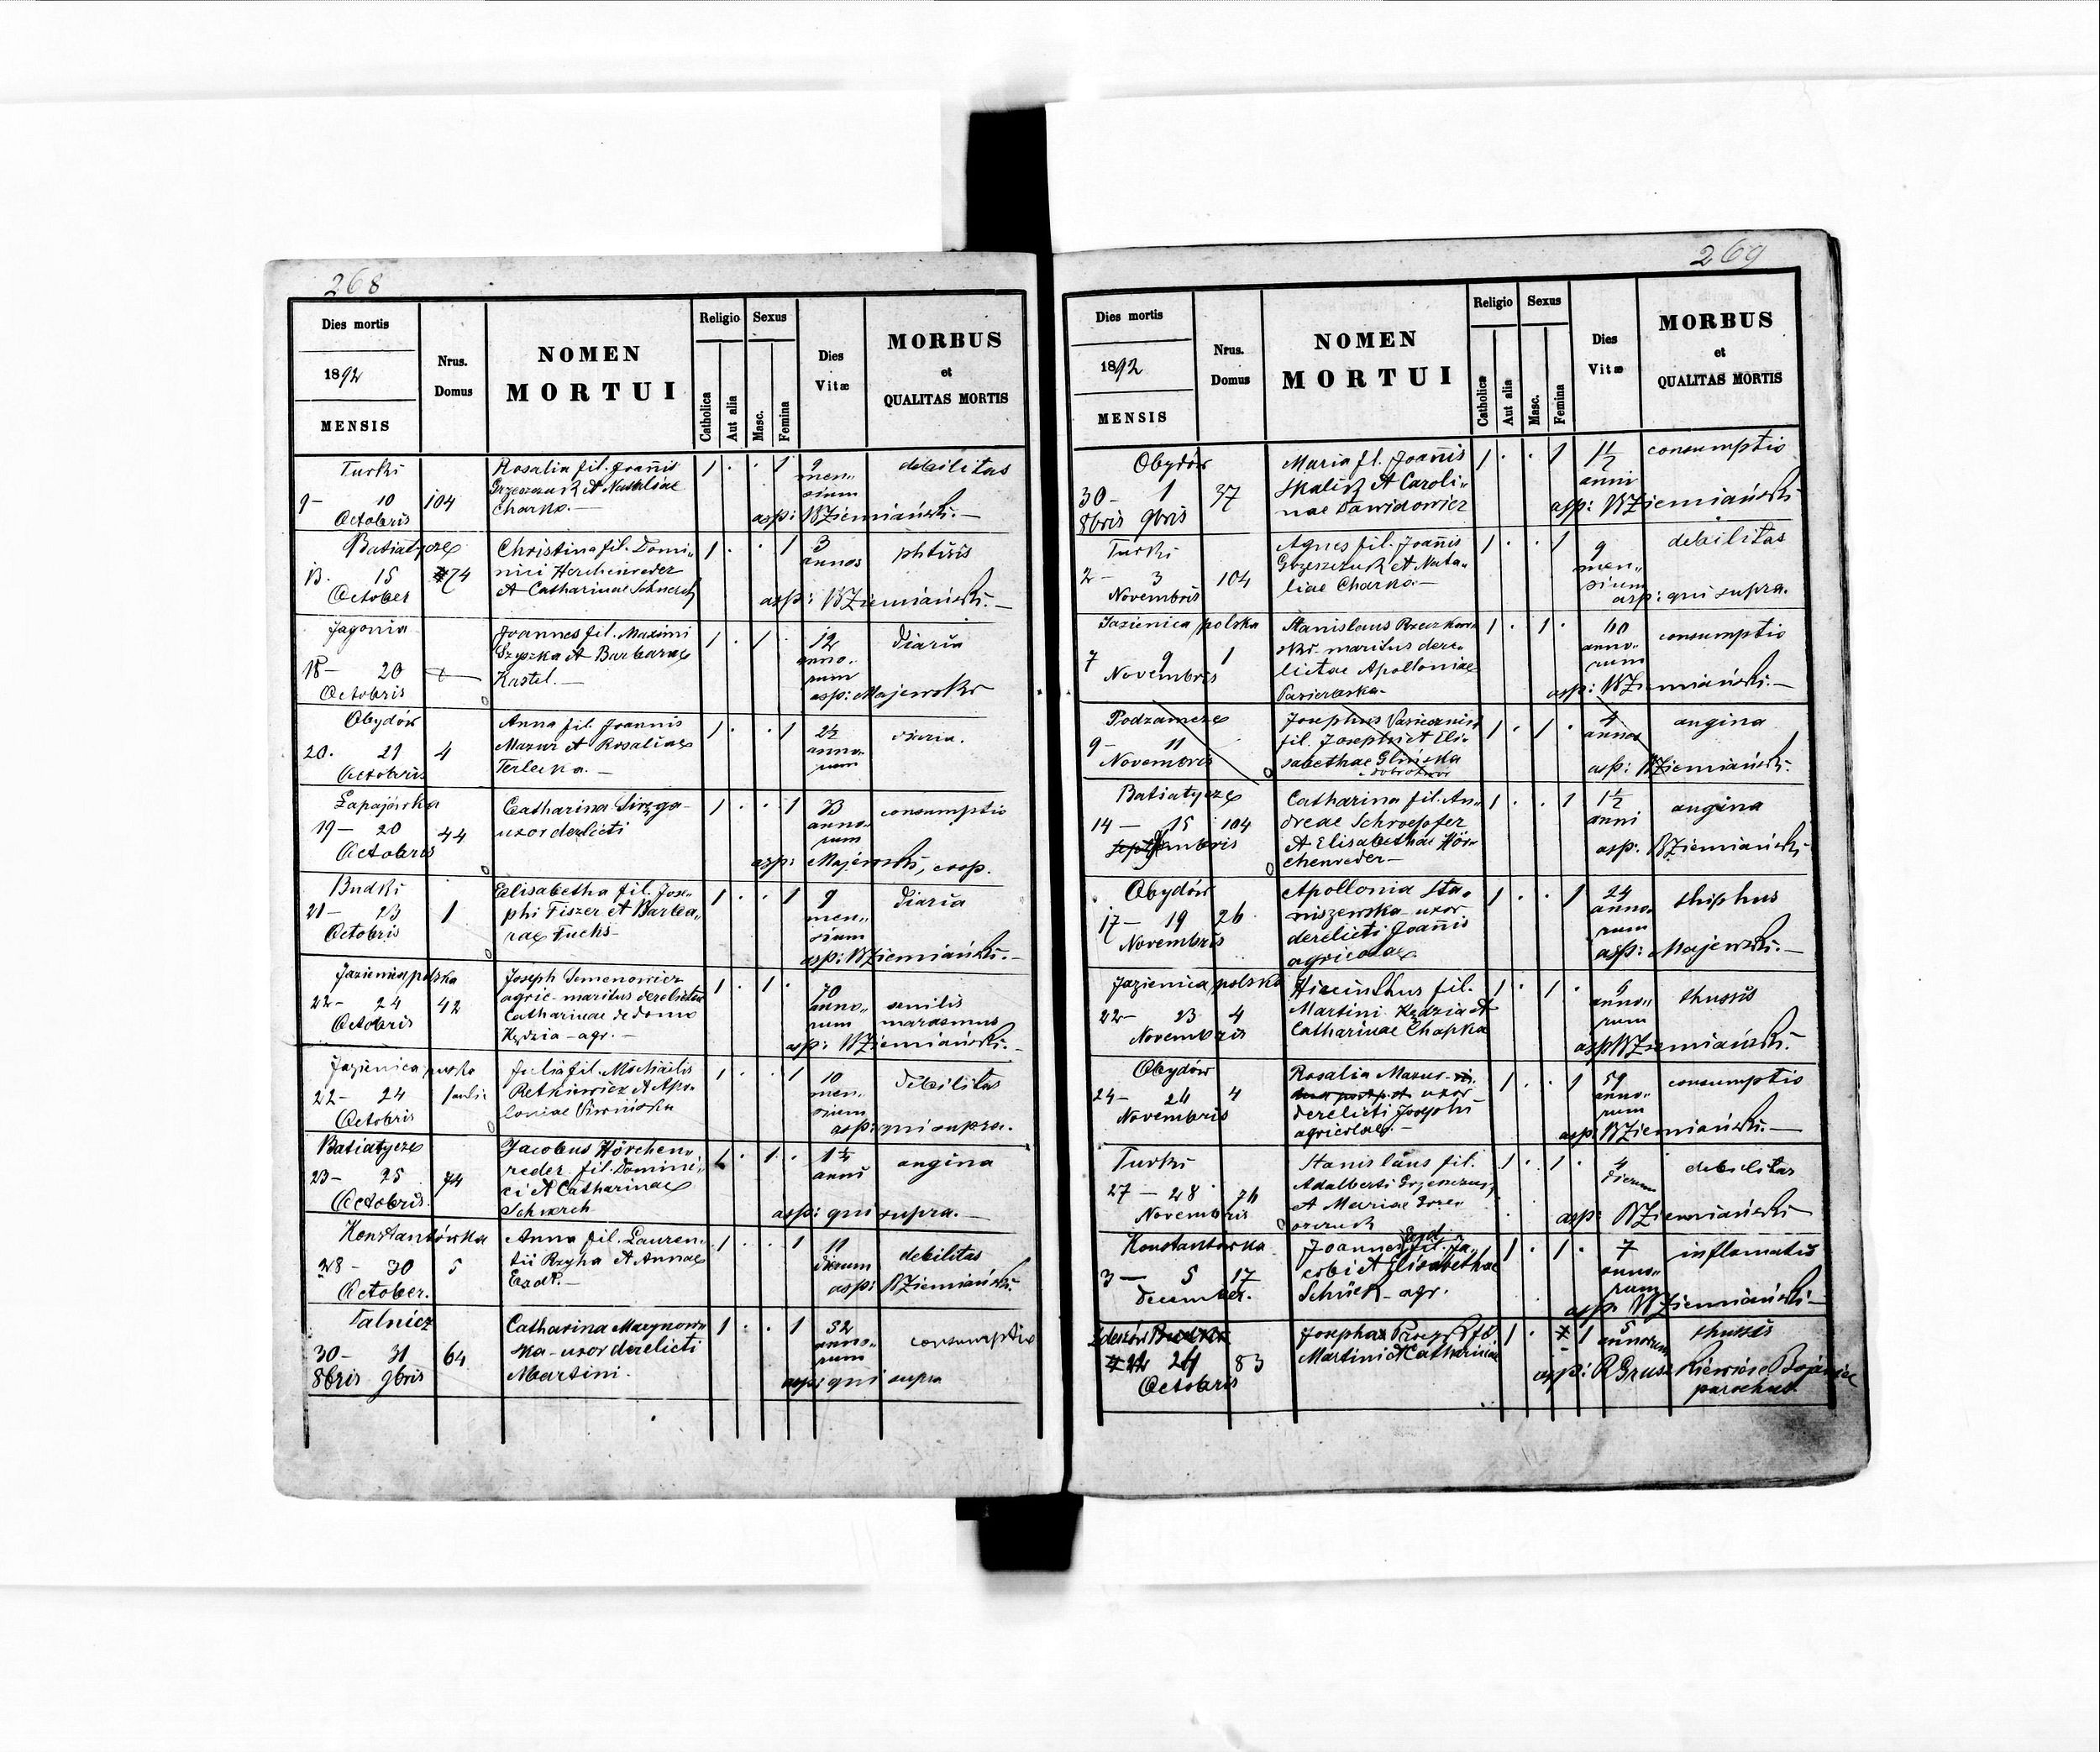 268
Dies mortis
1892
MENSIS
Nrus.
Domus
NOMEN
MORTUI
Religio
Catholica
Aut alia
Sexus
Masc.
Femina
Dies
Vitæ
MORBUS
et
QUALITAS MORTIS
Turki
9 - 10 104
Octobris
Rosalia fil. Joañis
Grzeszczuk et Nataliae
Charko. —
1 . . 1
9
men„
sium
debilitas
asp: WZiemiański. —
Batiatycze
13. 15 74
October
Christina fil. Domi„
nici Herchenreder
et Catharinae Schwerch
1 . . 1
3
annos
phtisis
asp: WZiemiański. —
Jagonia
18 - 20
Octobris
Joannes fil. Maximi
Szyszka et Barbarae
Kastel. —
1 . 1 .
12
anno„
rum
diaria
asp: Majewski
Obydów
20. 21 4
Octobris
Anna fil. Joannis
Mazur et Rosaliae
Terlecka. —
1 . . 1
2½
anno„
rum
diaria.
Łapajówka
19 - 20 44
Octobris
Catharina
uxor derelicti
1 . . 1
33
anno„
rum
consumptio
asp: Majewski, coop.
Budki
21 - 23 1
Octobris
Elisabetha fil. Jose„
phi Fiszer et Barba„
rae Fuchs —
1 . . 1
9
men„
sium
diaria
asp: WZiemiański. —
Jazienica polska
22 - 24 42
Octobris
Joseph Semenowicz
agric. maritus derelictae
Catharinae de domo
Kędzia - agr. —
1 . 1 .
70
anno„
rum
senilis
marasmus
asp: WZiemiański. —
Jazienica polska
22 - 24
Octobris
Julia fil. Michäelis
Petkiewicz et Apo„
loniae
1 . . 1
10
men„
sium
debilitas
asp: qui supra.
Batiatycze
23 - 25 74
Octobris
Jacobus Hörchen„
reder fil. Domini„
ci et Catharinae
Schwerch
1 . 1 .
1½
anni
angina
asp: qui supra. —
Konstantówka
28 - 30 5
October.
Anna fil. Lauren„
tii Ryzha et Annae
1 . . 1
11
dierum
debilitas
asp: WZiemiański.
30 - 31 64
8bris 9bris
Catharina Marynow„
ska - uxor derelicti
Martini.
1 . . 1
32
anno„
rum
consumptio
asp: qui supra
269
Dies mortis
1892
MENSIS
Nrus.
Domus
NOMEN
MORTUI
Religio
Catholica
Aut alia
Sexus
Masc.
Femina
Dies
Vitæ
MORBUS
et
QUALITAS MORTIS
Obydów
30 - 1 37
8bris 9bris
Maria fl. Joañis
Skalisz et Caroli„
nae Dawidowicz
1 . . 1
1½
anni
consumptio
asp: WZiemiański
Turki
2 - 3 104
Novembris
Agnes fil. Joañis
Grzeszczuk et Nata„
liae Charko. —
1 . . 1
9
men„
sium
debilitas
asp: qui supra.
Jazienica polska
7 9 1
Novembris
Stanislaus
ski - maritus dere„
lictae Apolloniae
1 . 1 .
40
anno„
rum
consumptio
asp: WZiemiański. —
Podzamcze
9 - 11
Novembris
Josephus
fil. Josephi et Eli„
sabethae Glińska
1 . 1 .
4
annos
angina
asp: WZiemiański.
Batiatycze
14 - 15 104
Catharina fil. An„
dreae Schroepfer
et Elisabethae Hör„
chenreder —
1 . . 1
1½
anni
angina
asp: WZiemiański
Obydów
17 - 19 26
Novembris
Apollonia Sta„
niszewska - uxor
derelicti Joañis
agricolae
1 . . 1
24
anno„
rum
thiphus
asp: Majewski. —
Jazienica polska
22 - 23 4
Novembris
Hiacinthus fil.
Martini Kędzia et
Catharinae Chapka
1 . 1 .
5
anno„
rum
thussis
asp WZiemiański.
Obydów
24 - 24 4
Novembris
Rosalia Mazur
uxor
derelicti Josephi
agricolae. —
1 . . 1
59
anno„
rum
consumptio
asp: WZiemiański. —
Turki
27 - 28 76
Novembris
Stanisläus fil.
Adalberti
et Mariae
1 . 1 .
4
dierum
debilitas
asp: WZiemiański
Konstantówka
3 - 5 17
December.
Joannes fil. Ja„
cobi et Elisabethae
Schück - agr.
1 . 1 .
7
anno„
rum
inflamatis
asp: WZiemiański —
24 83
Octobris
Josepha fil.
Martini et Catharinae
1 . 1
5
annorum
thussis
parochus